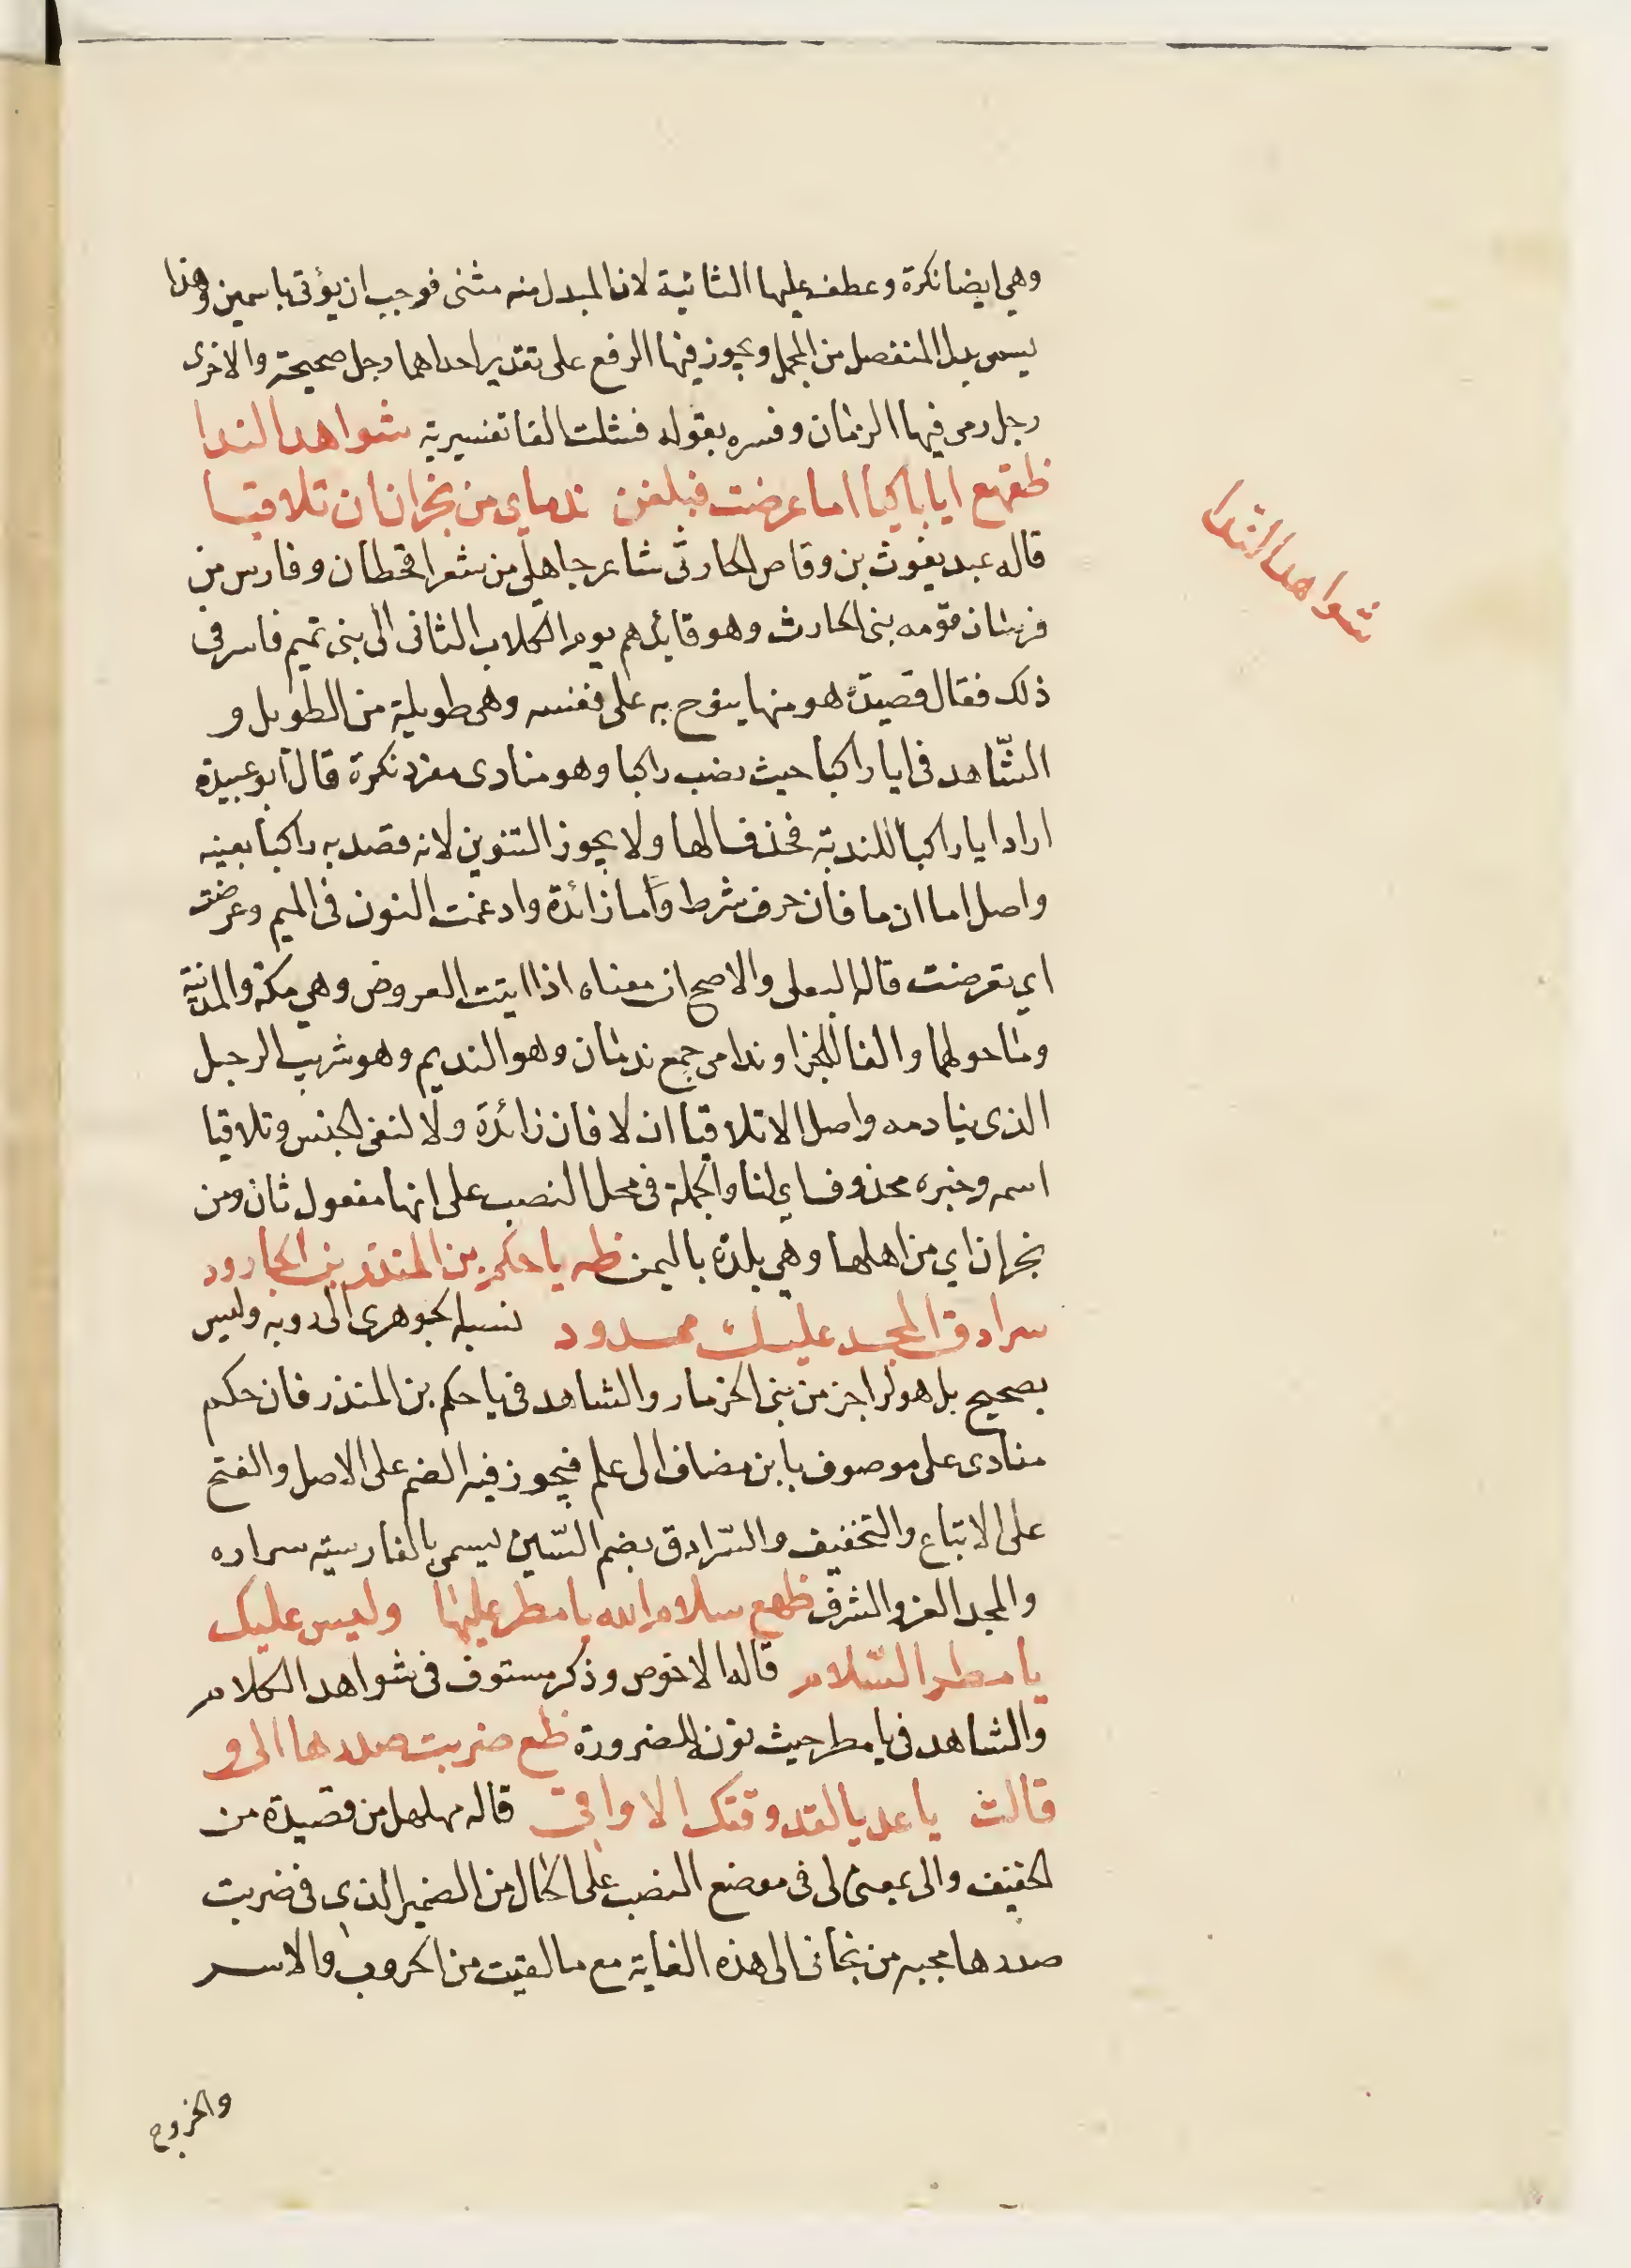 وهي ايضا نكرة وعطف عليها الثانية لان المبدل منه مثنى فوجب ان يؤتى باسمين وهذا
يسمى بدل المنفصل من المجمل ويجوز فيها الرفع على تقدير احداهما رجل صحيحة والاخرى
رجل رمى فيها الزمان وفسره بقوله فشلت الفا تفسيرية شواهد الندا
ظقهع ايا باكيا اما عرضت فبلغن ندماي من نجران ان تلاقيا
شواهد الندا
قاله عبد يغوث بن وقاص الحارثى شاعر جاهلى من شعرا قحطان وفارس من
فرسان قومه بنى الحارث وهو قايدهم يوم الكلاب الثانى الى بنى تميم فاسر فى
ذلك فقال قصيدة هو منها ينوح به على نفسه وهى طويلة من الطويل و
الشاهد فى ايا راكبا حيث نصب راكبا وهو منادى مفرد نكرة قال ابو عبيدة
اراد ايا راكبا للندبة فحذف الها ولا يجوز التنوين لانه قصد به راكبا بعينه
واصل اما ان ما فان حرف شرط وما زائدة وادغمت النون فى الميم وعرضت
اي تعرضت قاله البعلى والاصح ان معناه اذا اتيت العروض وهي مكة والمدينة
وما حولهما والفا للجزا وندامى جمع ندمان وهو النديم وهو شريب الرجل
الذى ينادمه واصل الا تلاقيا ان لا فان زائدة ولا لنفى الجنس وتلاقيا
اسمه وخبره محذوف اي لنا والجملة فى محل النصب على انها مفعول ثان ومن
نجران اي من اهلها وهي بلدة باليمن ظه يا حكم بن المنذر بن الجارود
سرادق المجد عليك ممدود نسبه الجوهرى الى روبه وليس
بصحيح بل هو لراجز من بنى الحرمار والشاهد فى يا حكم بن المنذر فان حكم
منادى على موصوف بابن مضاف الى علم فيجوز فيه الضم على الاصل والفتح
على الاتباع والتخفيف والسرادق بضم السين ليسمى بالفارسيته سراره
والمجد العز والشرف ظهع سلام الله يا مطر عليها وليس عليك
يا مطر السلام قاله الاخوص وذكر مستوف فى شواهد الكلام
والشاهد فى يا مطر حيث نونه للضرورة ظع ضربت صدرها الى و
قالت يا عديا لقد وقتك الاواقى قاله مهلهل من قصيدة من
الخفيف والى بمعنى لى فى موضع النصب على الحال من الضمير الذى فى ضربت
صدرها مجبه من نجاتى الى هذه الغاية مع ما لقيت من الحروب والاسر
والخروج